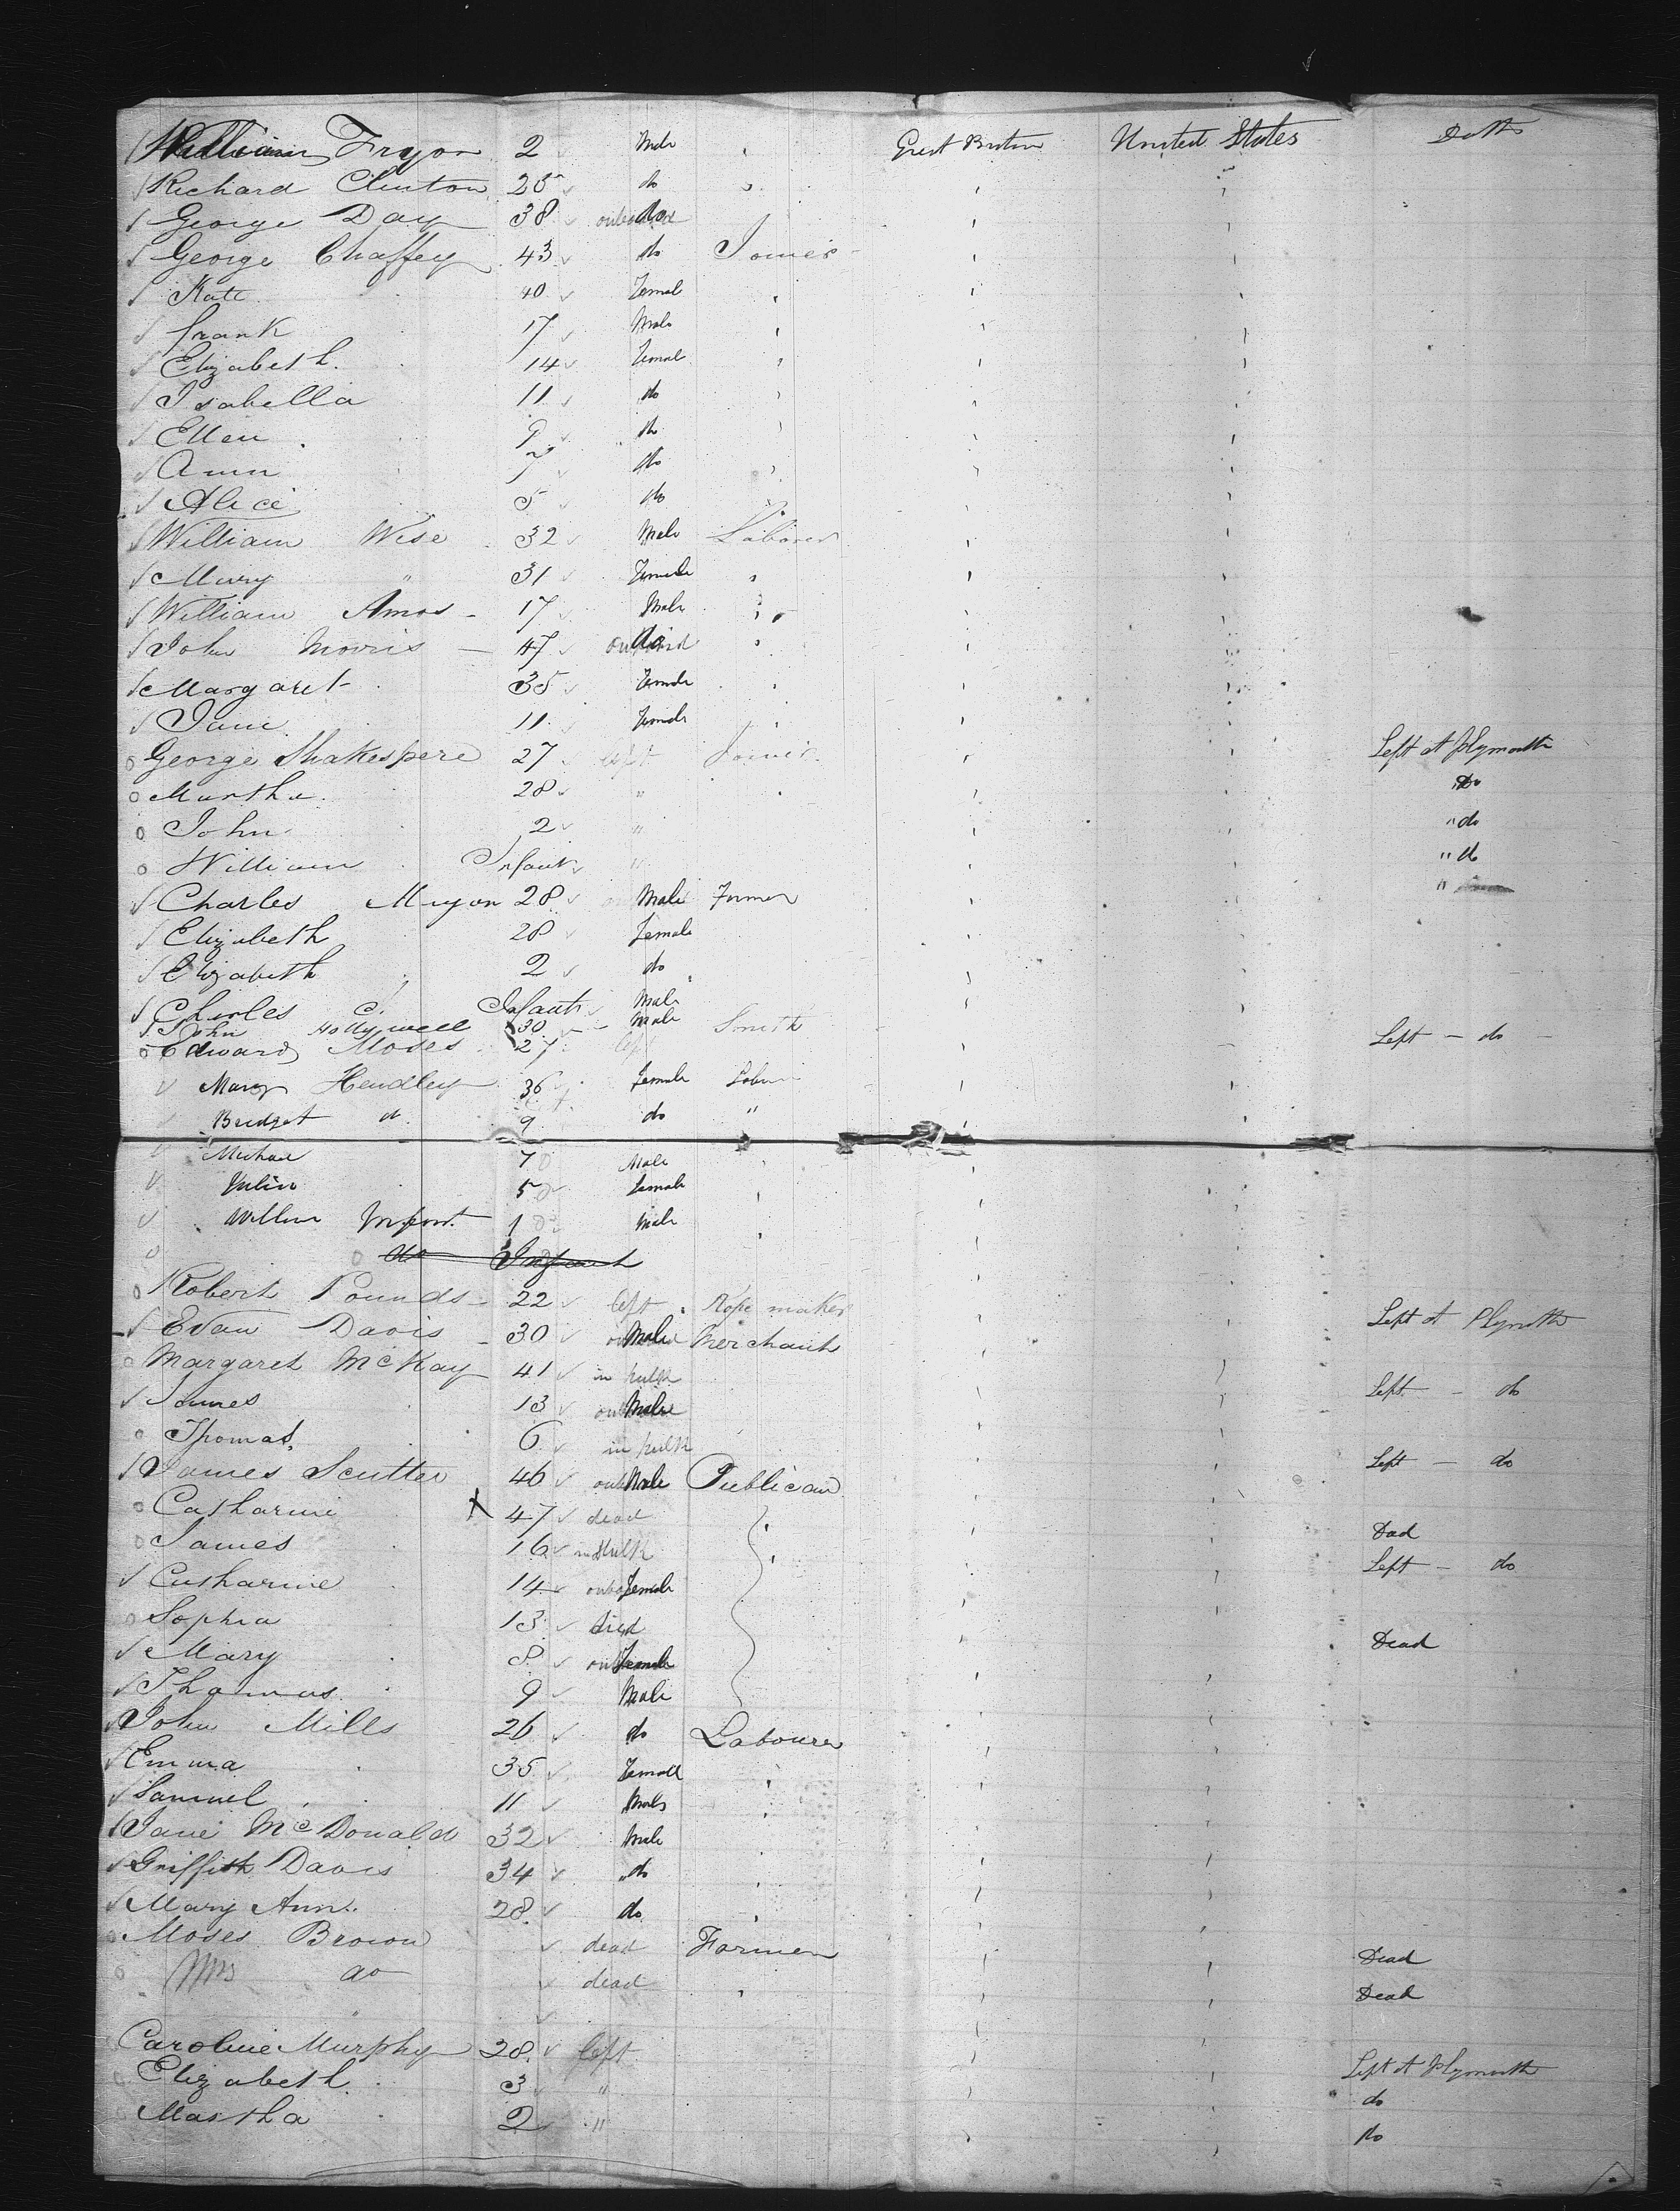 William Fryon 2 Male Great Britain United States Deaths
Richard Clinton 25 do
George Day 38 do
George Chaffey 43 do Joiner
Kate 40 Femal
frank 17 Male
Elizabeth 14 Femal
Isabella 11 do
Ellen 9 do
Ann 7 do
Alice 5 do
William Wise 32 Male Laborer
Mary " 31 Female
William Amos 17 Male
John Morris 47 do
Margaret 35 Female
Jane 11 Female
George Shakespere 27 left Joiner Left at Plymouth
Martha 28 " Do
John 2 " " do
William Infant " " do
Charles Muyon 28 Male Farmer "
Elizabeth 28 female
Elizabeth 2 do
Charles C. Infant Male
John Hollywell 30 Male Smith
Edward Moses 27 left Left - do -
Mary Hendley 36 female Labour
Bridget do 9 do "
Michael 7 Male
Julia 5 female
William Infant 1 Male
do Infant
Robert Pounds 22 left Rope maker Left at Plymouth
Evan Davis 30 Male Merchant
Margaret McKay 41 in hulk Left - do
James 13 Male
Thomas 6 in hulk Left - do
James Scutter 46 Male Publican
Catharine X 47 dead Dead
James 16 in Hulk Left - do
Catharine 14 female
Sophia 13 died Dead
Mary 8 Female
Thomas 9 Male
John Mills 26 do Labourer
Emma 35 Female
Samuel 11 Male
Jane McDonald 32 Male
Griffith Davis 34 " do
Mary Ann 28 do
Moses Brown dead Farmer Dead
Mrs do dead Dead
Caroline Murphy 28 left Left at Plymouth
Elizabeth 3 " do
Martha 2 " do